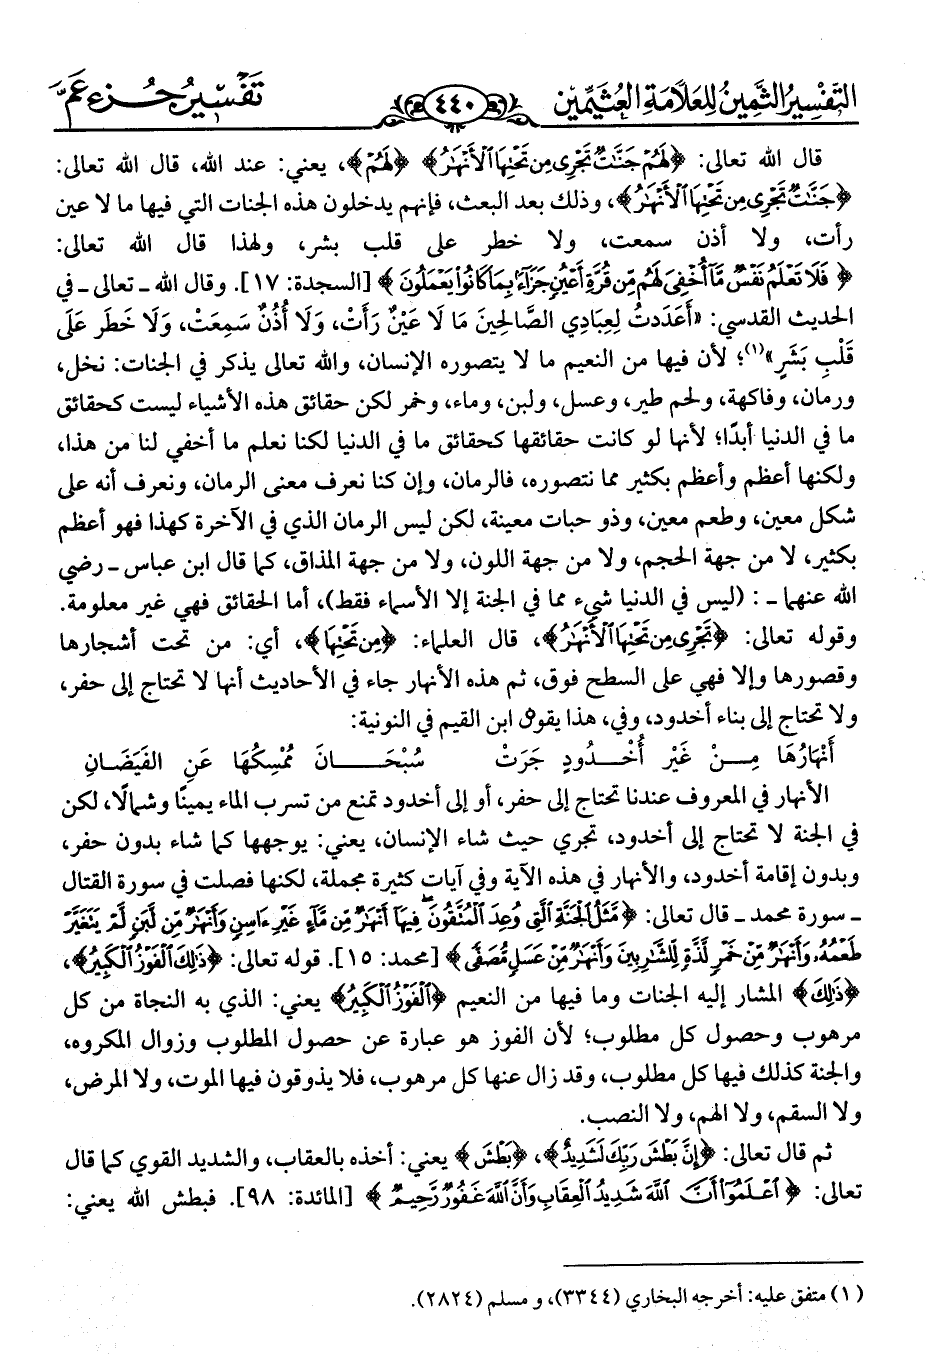 التفسير الثمين للعلامة العثيمين ٤٤٠ تفسير جزء عم
قال الله تعالى: ﴿لَهُمْ جَنَّاتٌ تَجْرِي مِن تَحْتِهَا الْأَنْهَارُ﴾ ﴿لَهُمْ﴾، يعني: عند الله، قال الله تعالى:
﴿جَنَّاتٌ تَجْرِي مِن تَحْتِهَا الْأَنْهَارُ﴾، وذلك بعد البعث، فإنهم يدخلون هذه الجنات التي فيها ما لا عين
رأت، ولا أذن سمعت، ولا خطر على قلب بشر، ولهذا قال الله تعالى:
﴿فَلَا تَعْلَمُ نَفْسٌ مَّا أُخْفِيَ لَهُم مِّن قُرَّةِ أَعْيُنٍ جَزَاءً بِمَا كَانُوا يَعْمَلُونَ﴾ [السجدة: ١٧]. وقال الله ـ تعالى ـ في
الحديث القدسي: «أَعَدَدتُ لِعِبَادِي الصَّالِحِينَ مَا لَا عَيْنٌ رَأَتْ، وَلَا أُذُنٌ سَمِعَتْ، وَلَا خَطَر عَلَى
قَلْبِ بَشَرٍ»(١)؛ لأن فيها من النعيم ما لا يتصوره الإنسان، والله تعالى يذكر في الجنات: نخل،
ورمان، وفاكهة، ولحم طير، وعسل، ولبن، وماء، وخمر لكن حقائق هذه الأشياء ليست كحقائق
ما في الدنيا أبدًا؛ لأنها لو كانت حقائقها كحقائق ما في الدنيا لكنا نعلم ما أخفي لنا من هذا،
ولكنها أعظم وأعظم بكثير مما نتصوره، فالرمان، وإن كنا نعرف معنى الرمان، ونعرف أنه على
شكل معين، وطعم معين، وذو حبات معينة، لكن ليس الرمان الذي في الآخرة كهذا فهو أعظم
بكثير، لا من جهة الحجم، ولا من جهة اللون، ولا من جهة المذاق، كما قال ابن عباس ـ رضي
الله عنهما ـ : (ليس في الدنيا شيء مما في الجنة إلا الأسماء فقط)، أما الحقائق فهي غير معلومة.
وقوله تعالى: ﴿تَجْرِي مِن تَحْتِهَا الْأَنْهَارُ﴾، قال العلماء: ﴿مِن تَحْتِهَا﴾، أي: من تحت أشجارها
وقصورها وإلا فهي على السطح فوق، ثم هذه الأنهار جاء في الأحاديث أنها لا تحتاج إلى حفر،
ولا تحتاج إلى بناء أخدود، وفي، هذا يقول ابن القيم في النونية:
أَنْهَارُهَا مِنْ غَيْرِ أُخْدُودٍ جَرَتْ سُبْحَانَ مُمْسِكُهَا عَنِ الفَيَضَانِ
الأنهار في المعروف عندنا تحتاج إلى حفر، أو إلى أخدود تمنع من تسرب الماء يمينًا وشمالًا، لكن
في الجنة لا تحتاج إلى أخدود، تجري حيث شاء الإنسان، يعني: يوجهها كما شاء بدون حفر،
وبدون إقامة أخدود، والأنهار في هذه الآية وفي آيات كثيرة مجملة، لكنها فصلت في سورة القتال
ـ سورة محمد ـ قال تعالى: ﴿مَّثَلُ الْجَنَّةِ الَّتِي وُعِدَ الْمُتَّقُونَ ۖ فِيهَا أَنْهَارٌ مِّن مَّاءٍ غَيْرِ ءَاسِنٍ وَأَنْهَارٌ مِّن لَّبَنٍ لَّمْ يَتَغَيَّرْ
طَعْمُهُ، وَأَنْهَارٌ مِّنْ خَمْرٍ لَّذَّةٍ لِّلشَّارِبِينَ وَأَنْهَارٌ مِّنْ عَسَلٍ مُّصَفًّى﴾ [محمد: ١٥]. قوله تعالى: ﴿ذَٰلِكَ الْفَوْزُ الْكَبِيرُ﴾،
﴿ذَٰلِكَ﴾ المشار إليه الجنات وما فيها من النعيم ﴿الْفَوْزُ الْكَبِيرُ﴾ يعني: الذي به النجاة من كل
مرهوب وحصول كل مطلوب؛ لأن الفوز هو عبارة عن حصول المطلوب وزوال المكروه،
والجنة كذلك فيها كل مطلوب، وقد زال عنها كل مرهوب، فلا يذوقون فيها الموت، ولا المرض،
ولا السقم، ولا الهم، ولا النصب.
ثم قال تعالى: ﴿إِنَّ بَطْشَ رَبِّكَ لَشَدِيدٌ﴾، ﴿بَطْشَ﴾ يعني: أخذه بالعقاب، والشديد القوي كما قال
تعالى: ﴿اعْلَمُوا أَنَّ اللَّهَ شَدِيدُ الْعِقَابِ وَأَنَّ اللَّهَ غَفُورٌ رَّحِيمٌ﴾ [المائدة: ٩٨]. فبطش الله يعني:
(١) متفق عليه: أخرجه البخاري (٣٣٤٤)، و مسلم (٢٨٢٤).